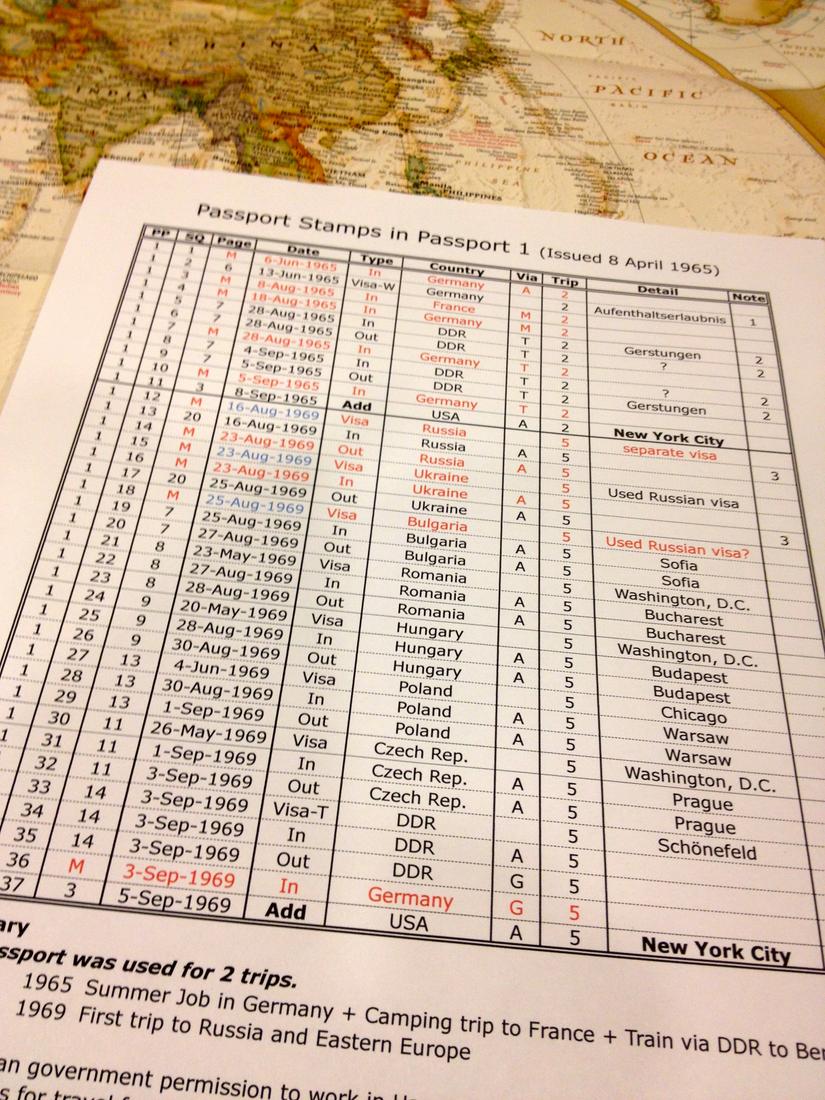 CHINA
INDIA
NORTH
PACIFIC
OCEAN
PHILIPPINE
SEA
Manila
PHILIPPINES
Passport Stamps in Passport 1 (Issued 8 April 1965)
PP SQ Page Date Type Country Via Trip Detail Note
1 1 M 6-Jun-1965 In Germany A 2
1 2 6 13-Jun-1965 Visa-W Germany 2 Aufenthaltserlaubnis 1
1 3 M 8-Aug-1965 In France M 2
1 4 M 18-Aug-1965 In Germany M 2
1 5 7 28-Aug-1965 In DDR T 2 Gerstungen 2
1 6 7 28-Aug-1965 Out DDR T 2 ? 2
1 7 M 28-Aug-1965 In Germany T 2
1 8 7 4-Sep-1965 In DDR T 2 ? 2
1 9 7 5-Sep-1965 Out DDR T 2 Gerstungen 2
1 10 M 5-Sep-1965 In Germany T 2
1 11 3 8-Sep-1965 Add USA A 2 New York City
1 12 M 16-Aug-1969 Visa Russia 5 separate visa
1 13 20 16-Aug-1969 In Russia A 5
1 14 M 23-Aug-1969 Out Russia A 5
1 15 M 23-Aug-1969 Visa Ukraine 5 Used Russian visa 3
1 16 M 23-Aug-1969 In Ukraine A 5
1 17 20 25-Aug-1969 Out Ukraine A 5
1 18 M 25-Aug-1969 Visa Bulgaria 5 Used Russian visa? 3
1 19 7 25-Aug-1969 In Bulgaria A 5 Sofia
1 20 7 27-Aug-1969 Out Bulgaria A 5 Sofia
1 21 8 23-May-1969 Visa Romania 5 Washington, D.C.
1 22 8 27-Aug-1969 In Romania A 5 Bucharest
1 23 8 28-Aug-1969 Out Romania A 5 Bucharest
1 24 9 20-May-1969 Visa Hungary 5 Washington, D.C.
1 25 9 28-Aug-1969 In Hungary A 5 Budapest
1 26 9 30-Aug-1969 Out Hungary A 5 Budapest
1 27 13 4-Jun-1969 Visa Poland 5 Chicago
1 28 13 30-Aug-1969 In Poland A 5 Warsaw
1 29 13 1-Sep-1969 Out Poland A 5 Warsaw
1 30 11 26-May-1969 Visa Czech Rep. 5 Washington, D.C.
1 31 11 1-Sep-1969 In Czech Rep. A 5 Prague
32 11 3-Sep-1969 Out Czech Rep. A 5 Prague
33 14 3-Sep-1969 Visa-T DDR 5 Schönefeld
34 14 3-Sep-1969 In DDR A 5
35 14 3-Sep-1969 Out DDR G 5
36 M 3-Sep-1969 In Germany G 5
37 3 5-Sep-1969 Add USA A 5 New York City
ary
ssport was used for 2 trips.
1965 Summer Job in Germany + Camping trip to France + Train via DDR to Ber
1969 First trip to Russia and Eastern Europe
an government permission to work in
s for travel